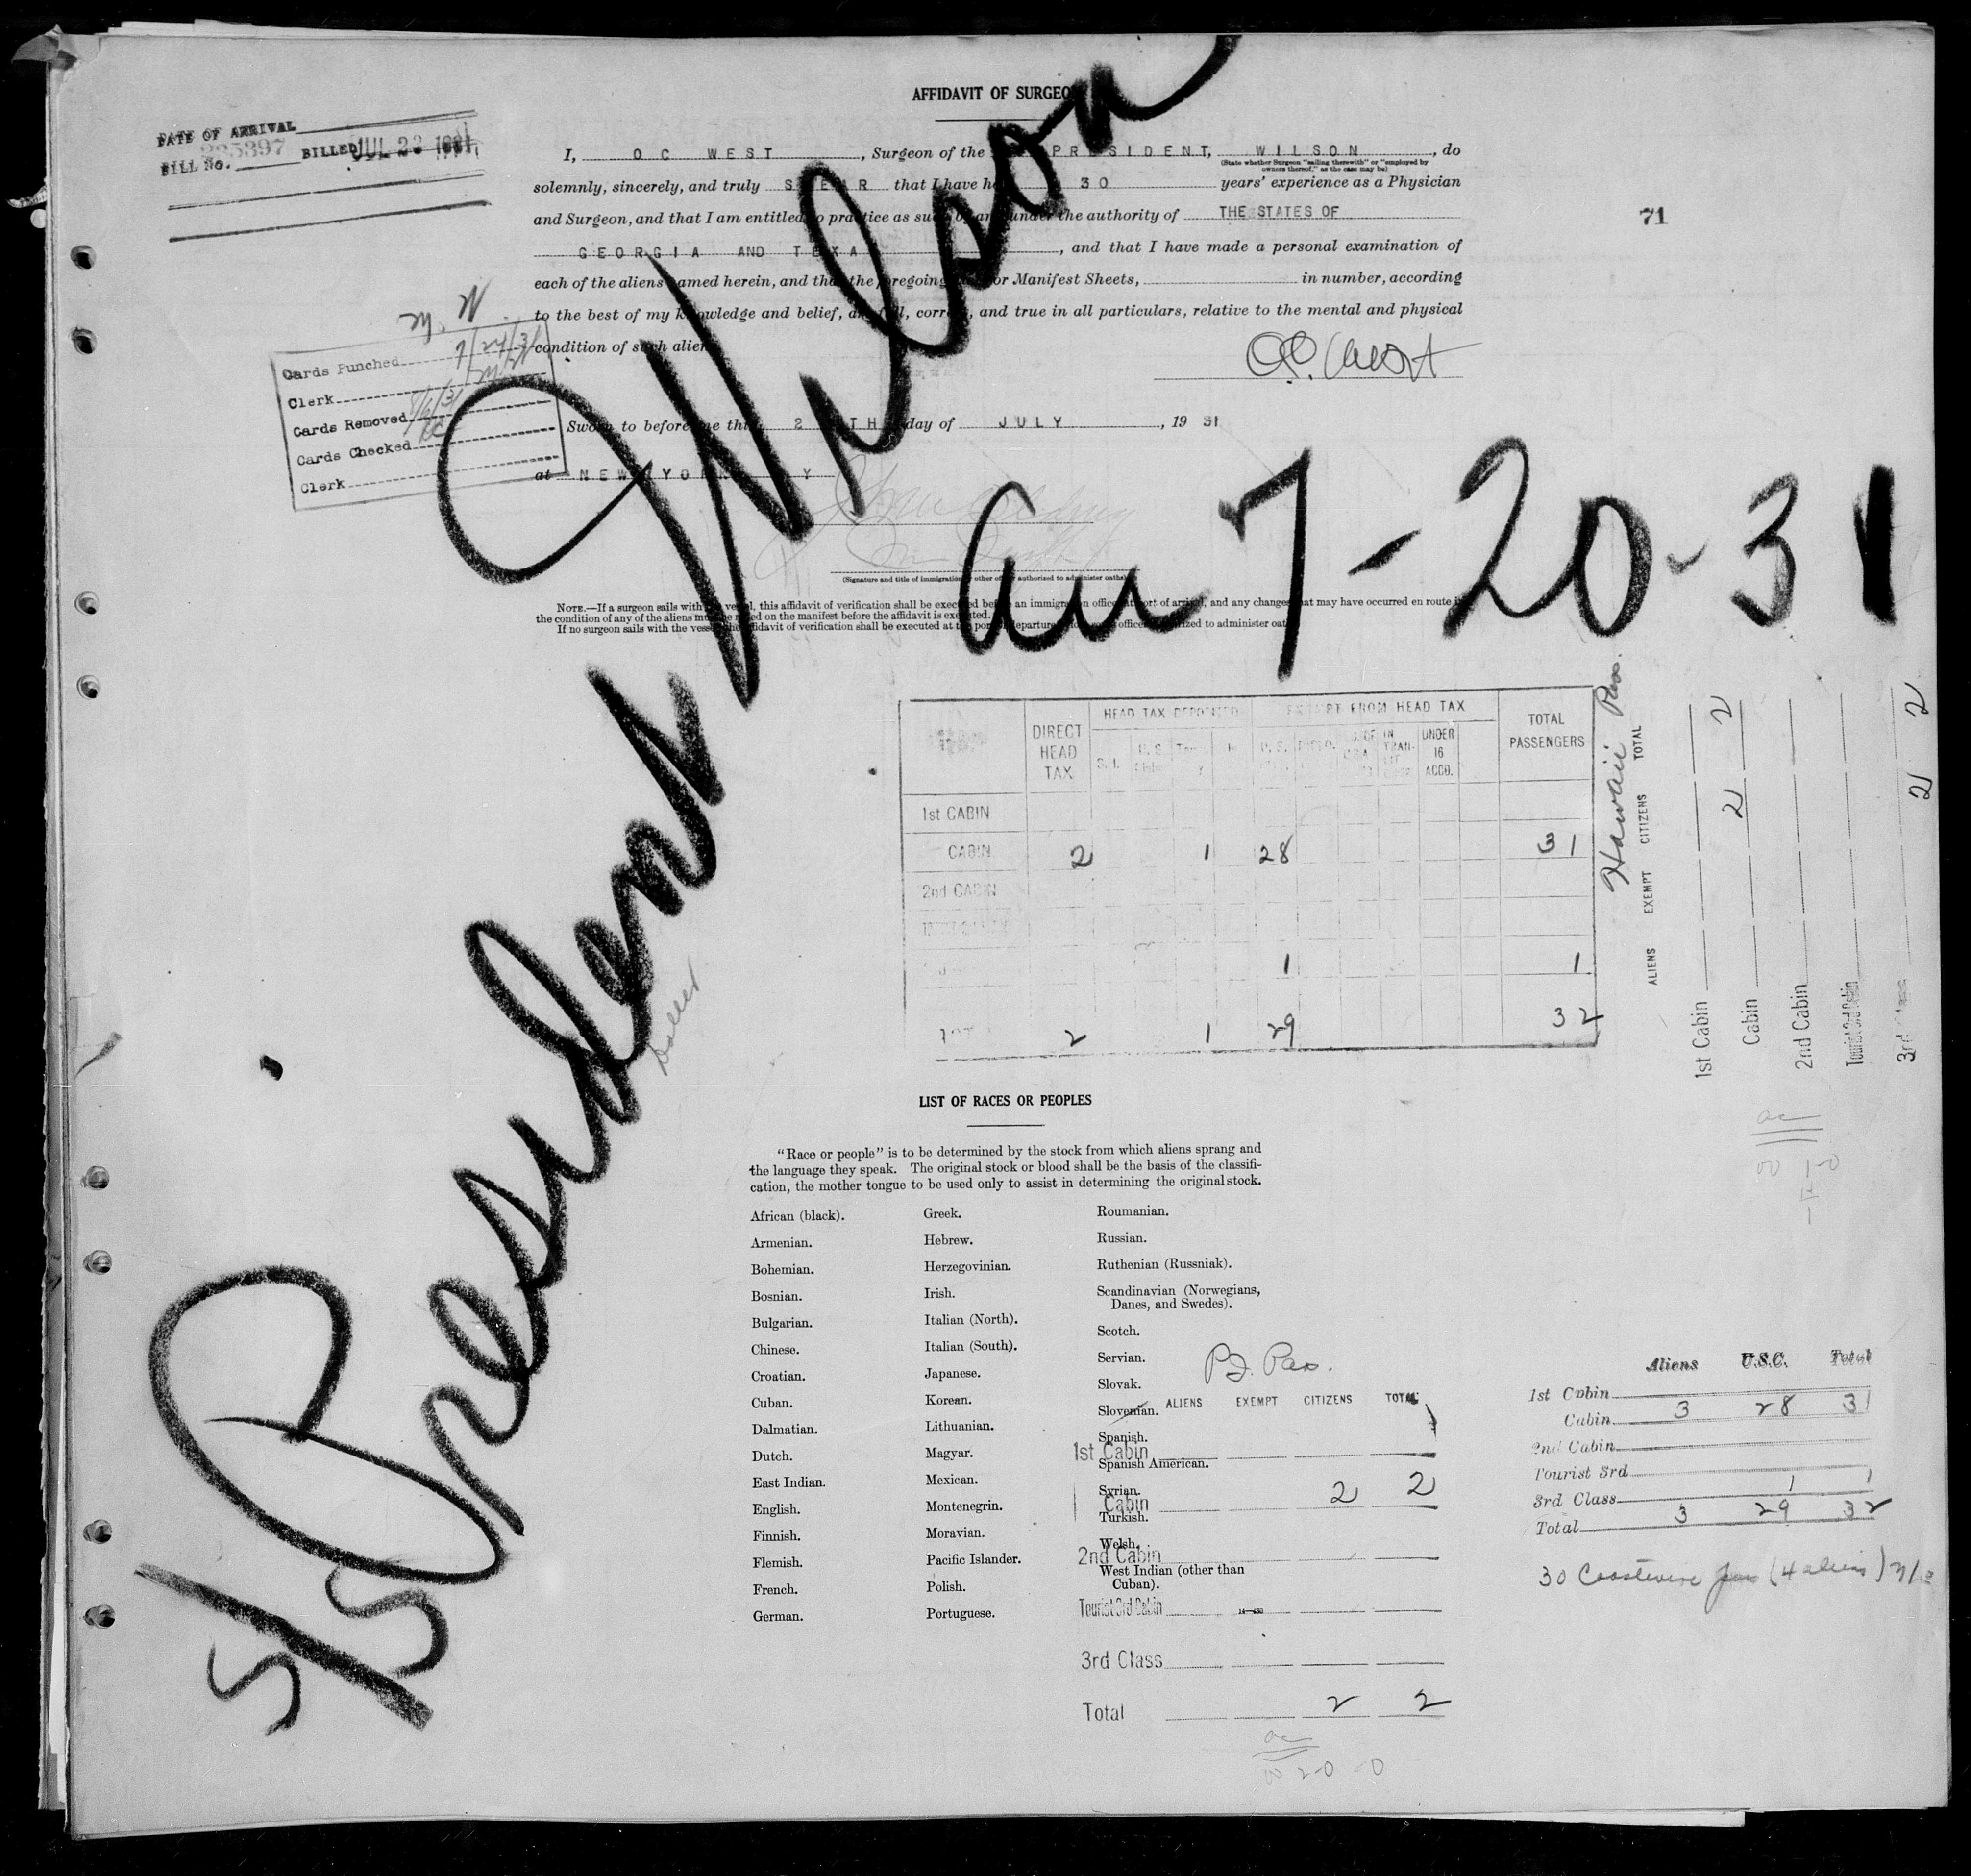 AFFIDAVIT OF SURGEON
DATE OF ARRIVAL
BILL No. 225397 BILLED JUL 23 1931
I, O C WEST, Surgeon of the PRESIDENT, WILSON, do
(State whether Surgeon "sailing therewith" or "employed by
owners thereof," as the case may be)
solemnly, sincerely, and truly SWEAR that I have had 30 years' experience as a Physician
and Surgeon, and that I am entitled to practice as such by and under the authority of THE STATES OF
GEORGIA AND TEXAS, and that I have made a personal examination of
each of the aliens named herein, and that the foregoing or Manifest Sheets, in number, according
to the best of my knowledge and belief, are full, correct, and true in all particulars, relative to the mental and physical
condition of such aliens
O.C. West
71
M. N.
Cards Punched 7/24/31
Clerk
Cards Removed 8/6/31
Cards Checked
Clerk
Sworn to before me this 20TH day of JULY, 1931
at NEW YORK N Y
(Signature and title of immigration or other officer authorized to administer oaths)
NOTE.—If a surgeon sails with the vessel, this affidavit of verification shall be executed before an immigration officer at port of arrival, and any changes that may have occurred en route in
the condition of any of the aliens must be noted on the manifest before the affidavit is executed.
If no surgeon sails with the vessel, the affidavit of verification shall be executed at the port of departure officer authorized to administer oaths
S/S President Wilson
Arr 7-20-31
Dollar
DIRECT HEAD TAX HEAD TAX DEPOSITED EXEMPT FROM HEAD TAX TOTAL PASSENGERS
S.I. U.S. UNDER 16 ACCD.
1st CABIN
CABIN 2 1 28 31
2nd CABIN
1 1
TOT 2 1 29 32
Hawaii Pass.
ALIENS EXEMPT CITIZENS TOTAL
1st Cabin
Cabin 2 2
2nd Cabin
Tourist 3rd Cabin
3rd Class
2 2
LIST OF RACES OR PEOPLES
"Race or people" is to be determined by the stock from which aliens sprang and
the language they speak. The original stock or blood shall be the basis of the classifi-
cation, the mother tongue to be used only to assist in determining the original stock.
African (black).
Armenian.
Bohemian.
Bosnian.
Bulgarian.
Chinese.
Croatian.
Cuban.
Dalmatian.
Dutch.
East Indian.
English.
Finnish.
Flemish.
French.
German.
Greek.
Hebrew.
Herzegovinian.
Irish.
Italian (North).
Italian (South).
Japanese.
Korean.
Lithuanian.
Magyar.
Mexican.
Montenegrin.
Moravian.
Pacific Islander.
Polish.
Portuguese.
Roumanian.
Russian.
Ruthenian (Russniak).
Scandinavian (Norwegians,
Danes, and Swedes).
Scotch.
Servian.
Slovak.
Slovenian.
Spanish.
Spanish American.
Syrian.
Turkish.
Welsh.
West Indian (other than
Cuban).
P.I. Pas.
ALIENS EXEMPT CITIZENS TOTAL
1st Cabin
Cabin 2 2
2nd Cabin
Tourist 3rd Cabin
3rd Class
Total 2 2
Aliens U.S.C. Total
1st Cabin
Cabin 3 28 31
2nd Cabin
Tourist 3rd
3rd Class 1 1
Total 3 29 32
30 Coastwise pas (4 aliens)